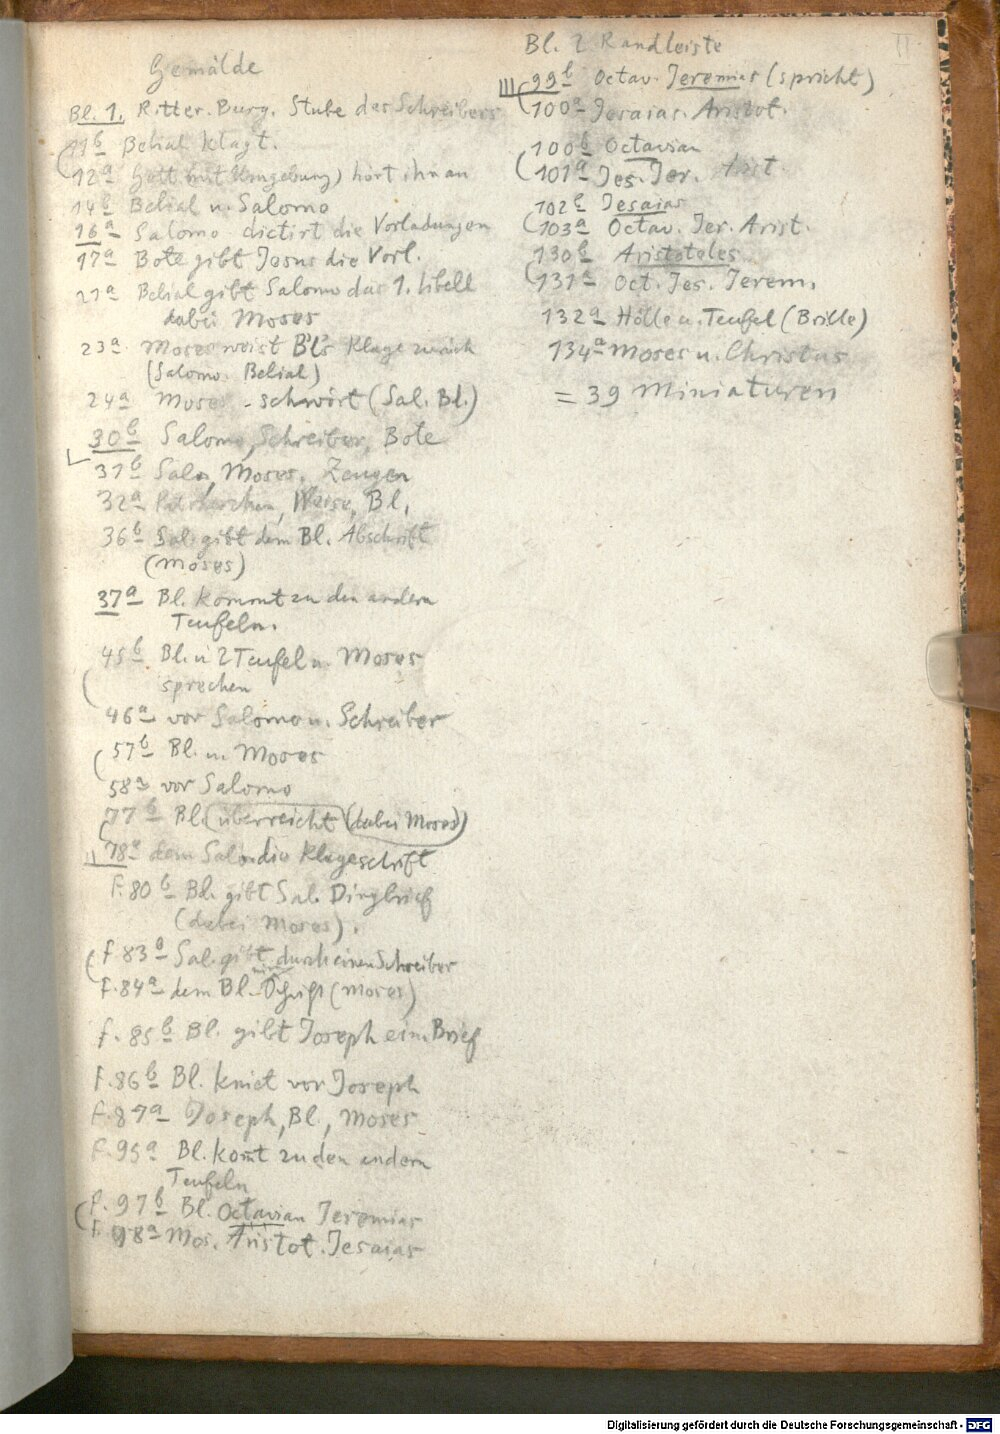 Gemälde
Bl. 1. Ritter. Burg. Stube des Schreibers
11b Belial klagt.
12a Gott (mit Umgebung) hört ihn an
14b Belial u. Salomo
16a Salomo dictirt die Vorladungen
17a Bote gibt Jesus die Vorl.
21a Belial gibt Salomo das 1. libell
dabei Moses
23a Moses weist Bl's Klage zurück
(Salomo. Belial)
24a Moses schwört (Sal. Bl.)
30b Salomo, Schreiber, Bote
31b Salo, Moses. Zeugen
32a Patriarchen, Weise, Bl.
36b Sal. gibt dem Bl. Abschrift
(Moses)
37a Bl. kommt zu den andern
Teufeln.
45b Bl. u 2 Teufel u. Moses
sprechen
46a vor Salomo u. Schreiber
57b Bl. u. Moses
58a vor Salomo
77b Bl. (überreicht) (dabei Moses)
II 78a dem Salo. die Klageschrift
f. 80b Bl. gibt Sal. Dingbrief
(dabei Moses).
f. 83a Sal. gibt durch einen Schreiber
f. 84a dem Bl. eine Schrift (Moses)
f. 85b Bl. gibt Joseph ein. Brief
f. 86b Bl. kniet vor Joseph
f. 87a Joseph, Bl., Moses
f. 95a Bl. kom̅t zu den andern
Teufeln
f. 97b Bl. Octavian Jeremias
f. 98a Mos. Aristot. Jesaias
II
Bl. 2 Randleiste
III 99b Octav. Jeremias (spricht)
100a Jesaias. Aristot.
100b Octavian
101a Jes. Jer. Arist.
102b Jesaias
103a Octav. Jer. Arist.
130b Aristoteles
131a Oct. Jes. Jerem.
132a Hölle u. Teufel (Brille)
134a Moses u. Christus
= 39 Miniaturen
Digitalisierung gefördert durch die Deutsche Forschungsgemeinschaft - DFG